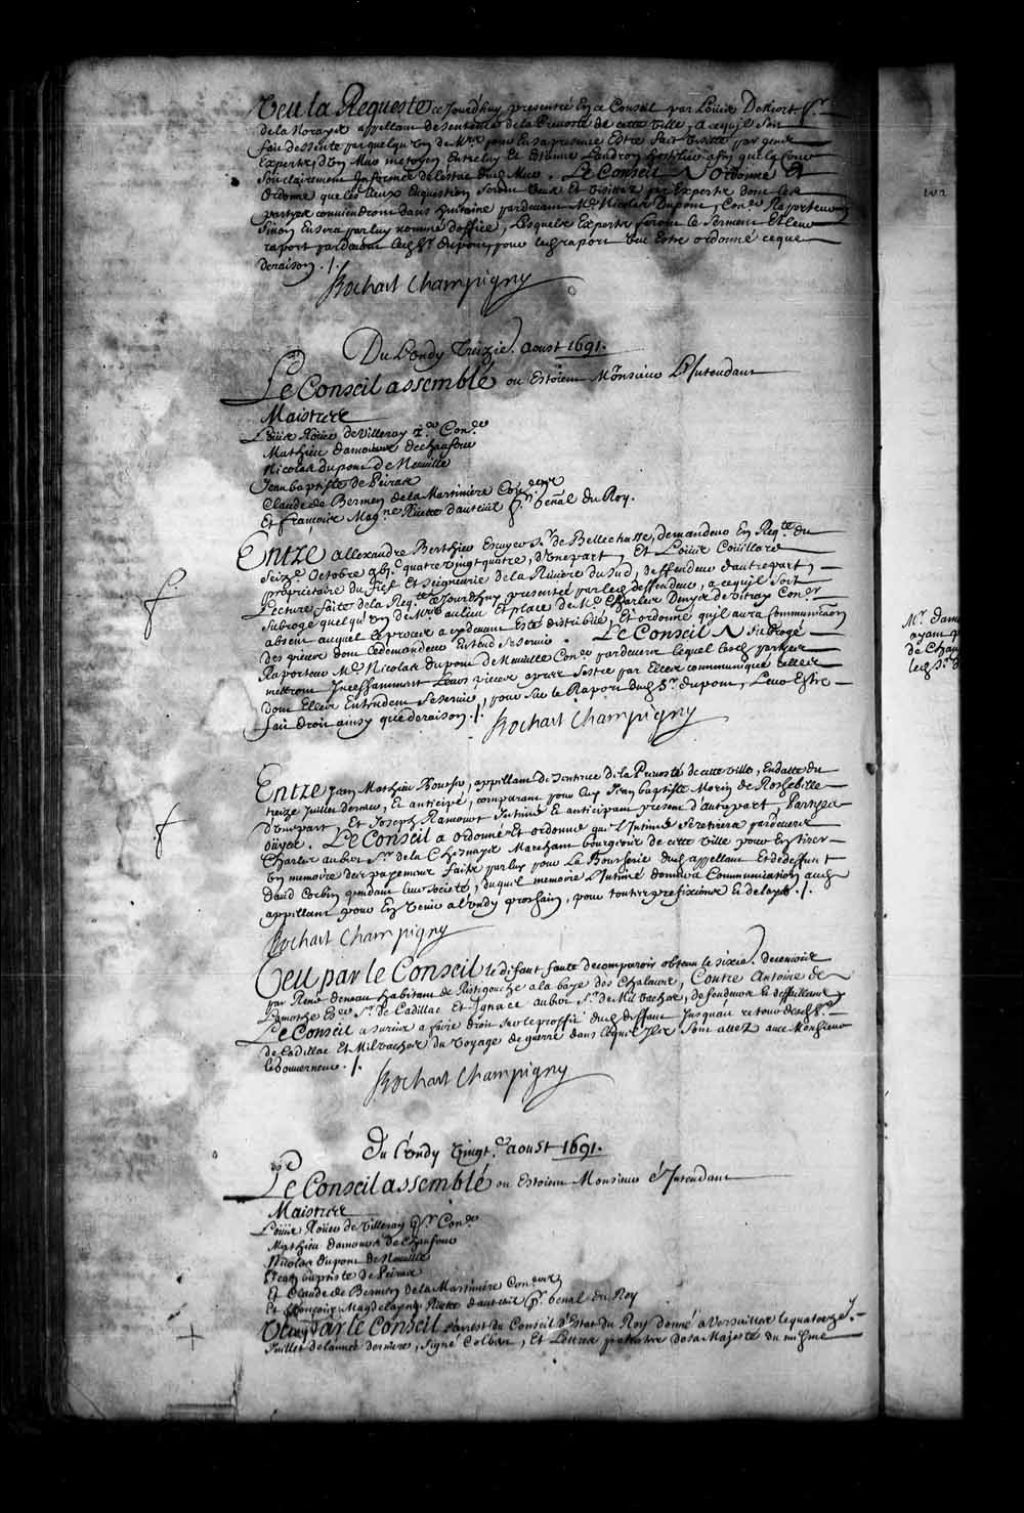 Veu la Requeste ce Jourdhuy presentée En ce Conseil par Loüis Denort Sr.
de la Noraye appellant de sentence de la Prevosté de cette ville, a cequ'il soit
fait dessente par quelqu'un de Mrs pour En sa presence Estre fait visite par gens
Expertz, d'Un Mur metoyen Entre luy Et Estienne Landron hostelier afin que la Cour
soit clairement Informée de lestat dud. Mur. Le Conseil A Ordonné Et
Ordonne que les lieux En question seront veus Et visitez par Expertz dont les
partyes conviendront dans huitaine pardevant Me. Nicolas Dupont, Coner Raporteur
sinon En sera par luy nommé d'office, Lesquels Expertz feront le serment Et leur
raport pardevant led. Sr. dupont, pour led. raport veu Estre ordonné ce que
de raison ./.
Bochart Champigny
Du Lundy treizie. aoust 1691.
Le Conseil assemblé ou Estoient Monsieur L'Intendant
Maistres
Loüis Roüer de Villeray 1er. Coner
Mathieu damours deschaufour
Nicolas dupont de Neuville
Jean baptiste de Peiras
Claude de Bermen de la Martiniere Coners
Et françois Magne Ruette dauteuil pr. genal du Roy.
Entre allexandre Berthier Escuyer Sr. de Bellechasse, demandeur En Reqte. du
seize. Octobre gbic quatre vingt quatre, d'Une part, Et Loüis Couillard
propriétaire du fief Et seigneurie de la Riviere du sud, deffendeur d'autre part,
Lecture faite de la Reqte. ce Jourdhuy presentée par led. deffendeur, a cequ'il soit
subrogé quelqu'un de Mrs au lieu Et place de Me. Charles Denys de Vitray Coner
absent auquel le procez a cydevant Esté distribué, Et ordonné qu'il aura Communicaon
des pieces dont le demandeur Entend se servir. Le Conseil A Subrogé
Raporteur Me. Nicolas dupont de Neuville Coner pardevers lequel lesd. parties
mettront Incessamment Leurs pieces apres s'estre par Elles communiqué celles
dont Elles Entendent se servir, pour sur le Raport dud. Sr. dupont, Leur Estre
fait droit ainsy que de raison ./.
Bochart Champigny
Entre Jean Mathieu Rouche, appellant de sentence de la Prevosté de cette ville, En datte du
treize Juillet dernier, Et anticipé, comparant pour luy Jean baptiste Morin de Rochebelle
d'Une part, Et Joseph Ramouset Intimé Et anticipant present d'autre part, Partyes
oüyes. Le Conseil a ordonné Et ordonne que l'Intimé se retirera pardevers
Charles aubert Sr. de la Chesnaye Marchant bourgeois de cette ville pour En tirer
Un memoire des payemens faits par luy pour la Boursserie dud. appellant Et de deffunt
david Corbin pendant leur societé, duquel memoire l'Intimé donnera Communication aud.
appellant pour En Venir a lundy prochain, pour toutes prefixions Et delays ./.
Bochart Champigny
Veu par le Conseil le defaut faute de comparoir obtenu le sixie. decembre
par René deneau habitant de Ristigouche a la baye des Chaleurs, Contre Antoine de
Lamothe Escr Sr. de Cadillac Et Ignace aubert Sr. de Milvachat, deffendeurs Et deffaillans
Le Conseil a surcis a faire droit sur le proffit dud. deffaut Jusqu'au retour desd. Srs.
de Cadillac Et Milvachat du voyage de guerre dans lequel Ils sont allez avec Monsieur
le Gouverneur ./.
Bochart Champigny
Du Lundy vingte. aoust 1691.
Le Conseil assemblé ou Estoient Monsieur L'Intendant
Maistres
Loüis Roüer de Villeray 1er Coner
Mathieu damours deschaufour
Nicolas dupont de Neuville
Jean baptiste de Peiras
Et Claude de Bermen de la Martiniere Coners
Et françois Magdelayne Ruette dauteuil pr. genal du Roy
Veu par le Conseil l'arrest du Conseil d'Estat du Roy donné a Versailles le quatorze
Juillet de l'année derniere, signé Colbert, Et Lettres patentes de sa Majesté du mesme
Mr. dam
ayant
de Chau
led. Sr. d